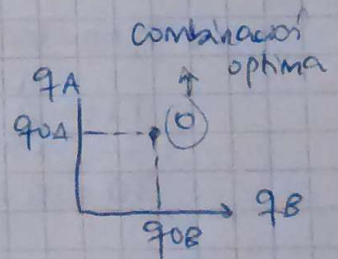 combinación
optima
qA
q0A
0
qB
q0B